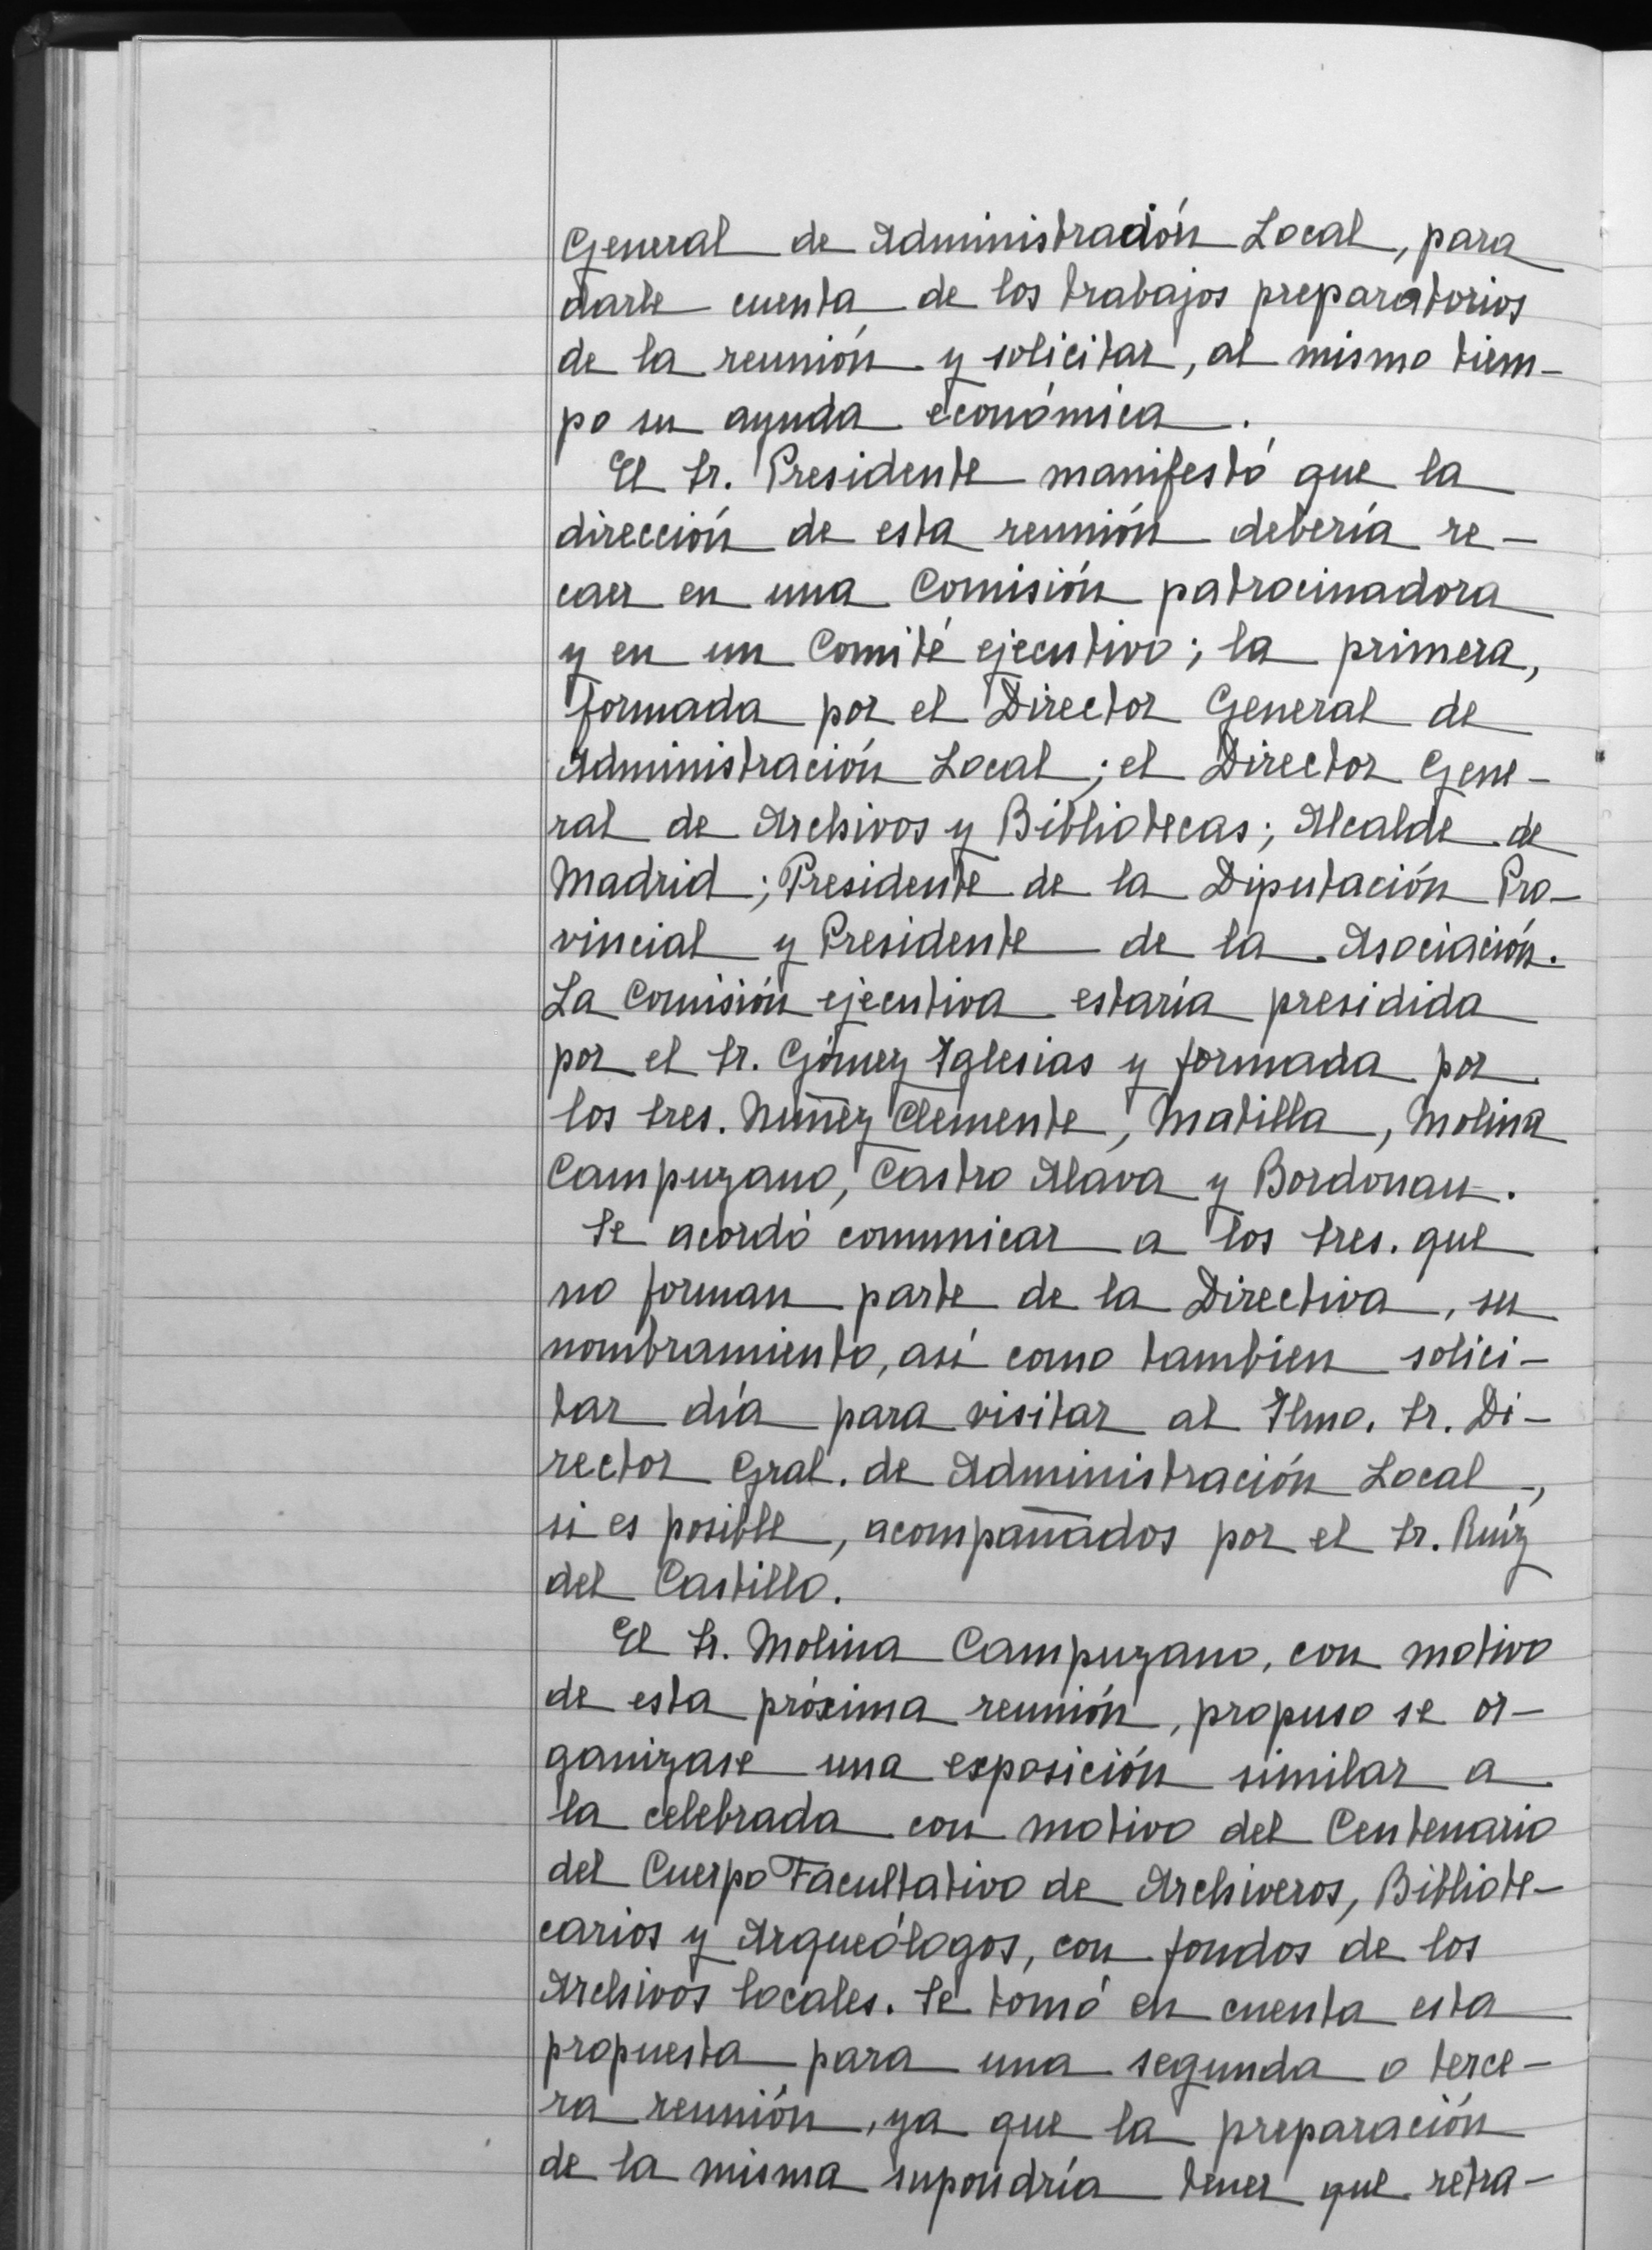 General de Administración Local, para
darle cuenta de los trabajos preparatorios
de la reunión y solicitar, al mismo tiem-
po su ayuda económica.
El Sr. Presidente manifestó que la
dirección de esta reunión debería re-
caer en una Comisión patrocinadora
y en un Comité ejecutivo; la primera,
formada por el Director General de
Administración Local; el Director Gene-
ral de Archivos y Bibliotecas; Alcalde de
Madrid; Presidente de la Diputación Pro-
vincial y Presidente de la Asociación.
La Comisión ejecutiva estaría presidida
por el Sr. Gómez Iglesias y formada por
los Sres. Nuñez Clemente, Matilla, Molina
Campuzano, Castro Alava y Bordonau.
Se acordó comunicar a los Sres. que
no forman parte de la Directiva, su
nombramiento, así como tambien solici-
tar día para visitar al Ilmo. Sr. Di-
rector Gral. de Administración Local,
si es posible, acompañados por el Sr. Ruíz
del Castillo.
El Sr. Molina Campuzano, con motivo
de esta próxima reunión, propuso se or-
ganizase una exposición similar a
la celebrada con motivo del Centenario
del Cuerpo Facultativo de Archiveros, Bibliote-
carios y Arqueólogos, con fondos de los
Archivos locales. Se tomó en cuenta esta
propuesta para una segunda o terce-
ra reunión, ya que la preparación
de la misma supondría tener que retra-